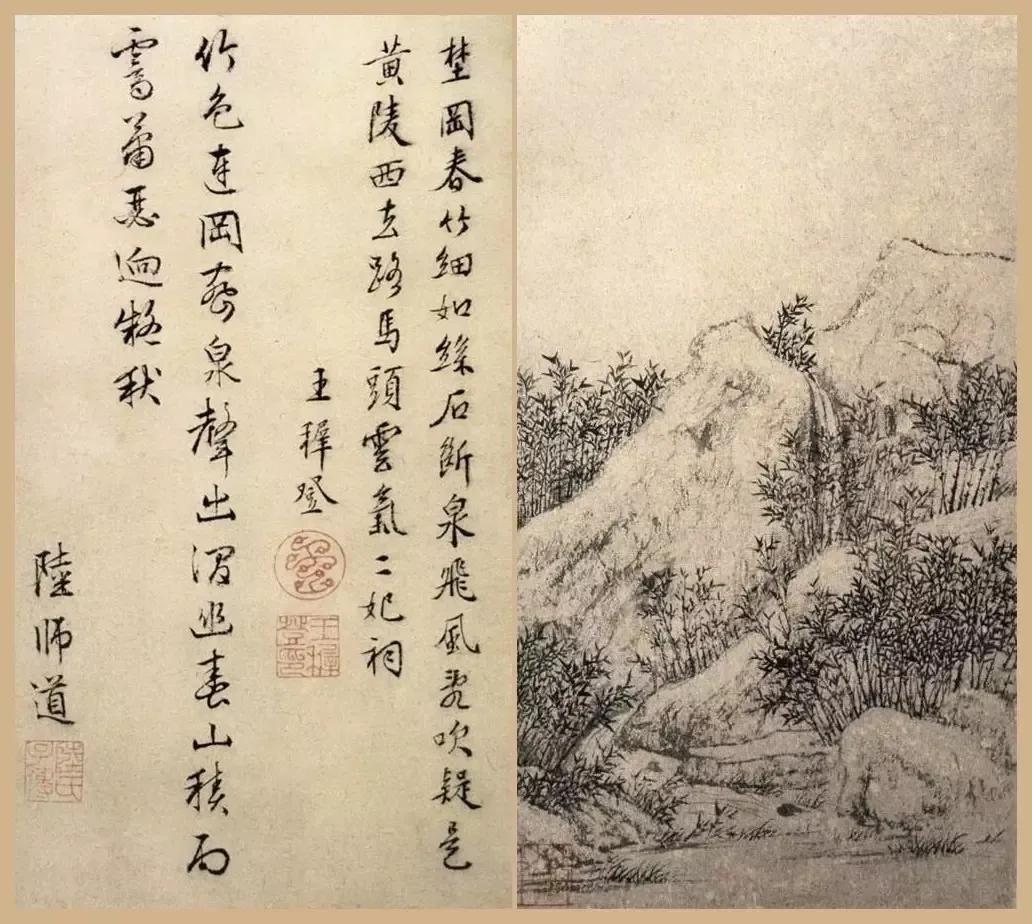 埜岡春竹細如絲石斷泉飛風吹疑是
黃陵西去路馬頭雲氣二妃祠
王穉登
王穉登印
竹色連岡密泉聲出澗幽春山積雨
霽蕭瑟逈秋
陸師道
陸氏子傳